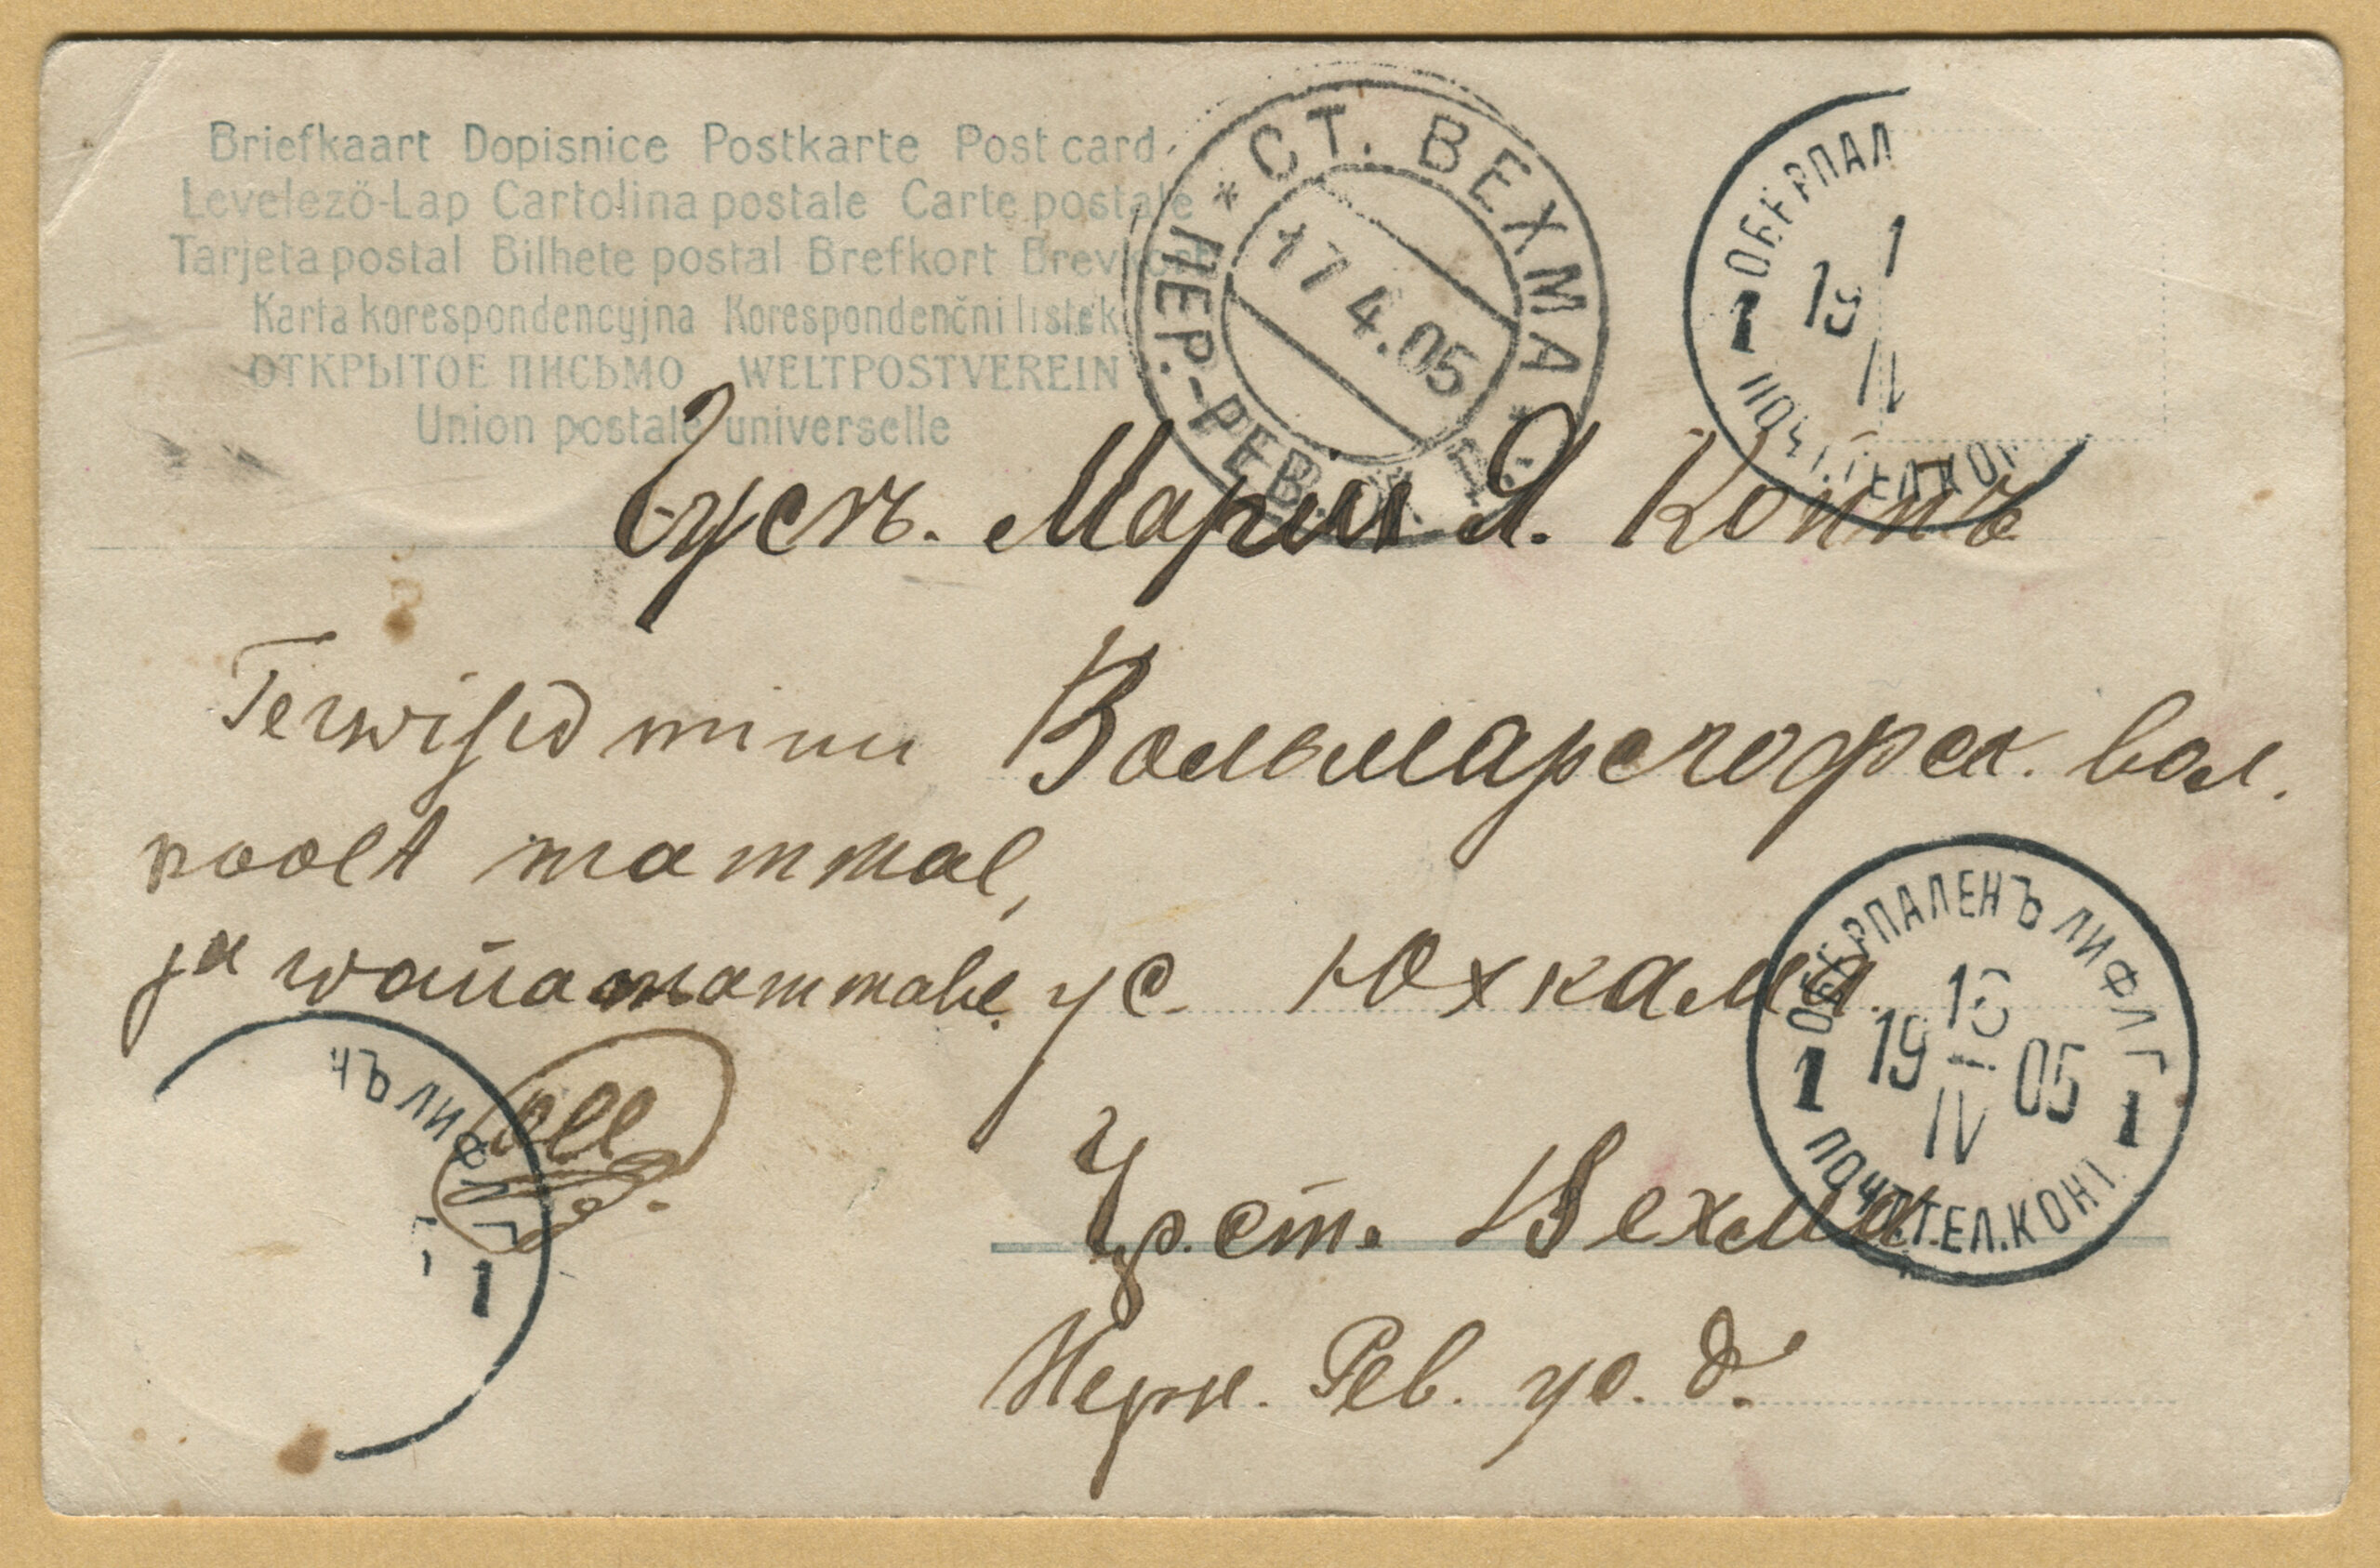 Briefkaart Dopisnice Postkarte Post card
Levelező-Lap Cartolina postale Carte postale
Tarjeta postal Bilhete postal Brefkort Brevkort
Karta korespondencyjna Korespondenční listek
ОТКРЫТОЕ ПИСЬМО WELTPOSTVEREIN
Union postale universelle
* СТ. ВЕХМА *
ПЕР.-РЕВ.
17 4.05
ОБЕРПАЛ
1
19
IV
1
ПОЧ.ТЕЛ.КОН
Марiи Я. Коппъ
Terwisid minu
poolt mammal,
ja wanamammale.
Вольмарсгофск. вол.
ус. Юхкама
Чр. ст. Вехма
Перн. Рев. уо. д.
ОБЕРПАЛЕНЪ ЛИФЛ Г
19 05
IV
1 1
ПОЧ.ТЕЛ.КОНТ.
НЪ ЛИФЛ Г
1